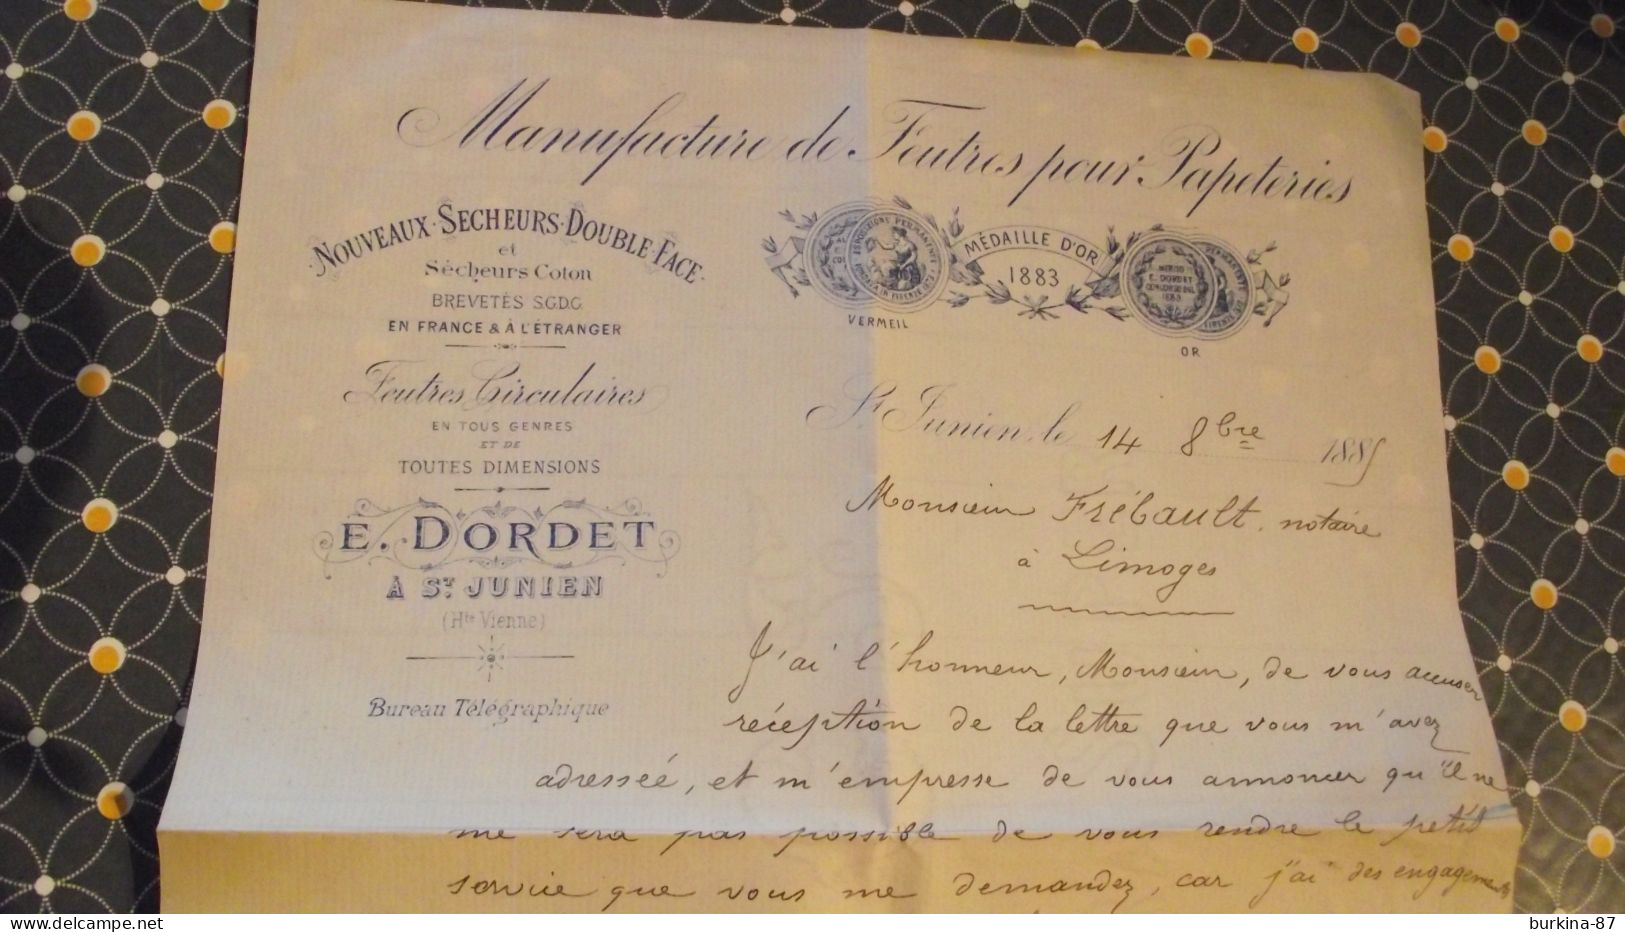 Manufacture de Feutres pour Papeteries
NOUVEAUX · SECHEURS · DOUBLE · FACE
et
Sécheurs Coton
BREVETÉS S.G.D.G.
EN FRANCE & À L'ÉTRANGER
Feutres Circulaires
EN TOUS GENRES
ET DE
TOUTES DIMENSIONS
E. DORDET
À ST JUNIEN
(Hte Vienne)
Bureau Télégraphique
ESPOSIZIONE PERMANENTE
VERMEIL
MÉDAILLE D'OR
1883
E. DORDET
1883
OR
St Junien, le 14 8bre 1885
Monsieur Frébault, notaire
à Limoges
J'ai l'honneur, Monsieur, de vous accuser
réception de la lettre que vous m'avez
adressée, et m'empresse de vous annoncer qu'il ne
me sera pas possible de vous rendre le petit
service que vous me demandez, car j'ai des engagements
burkina-87